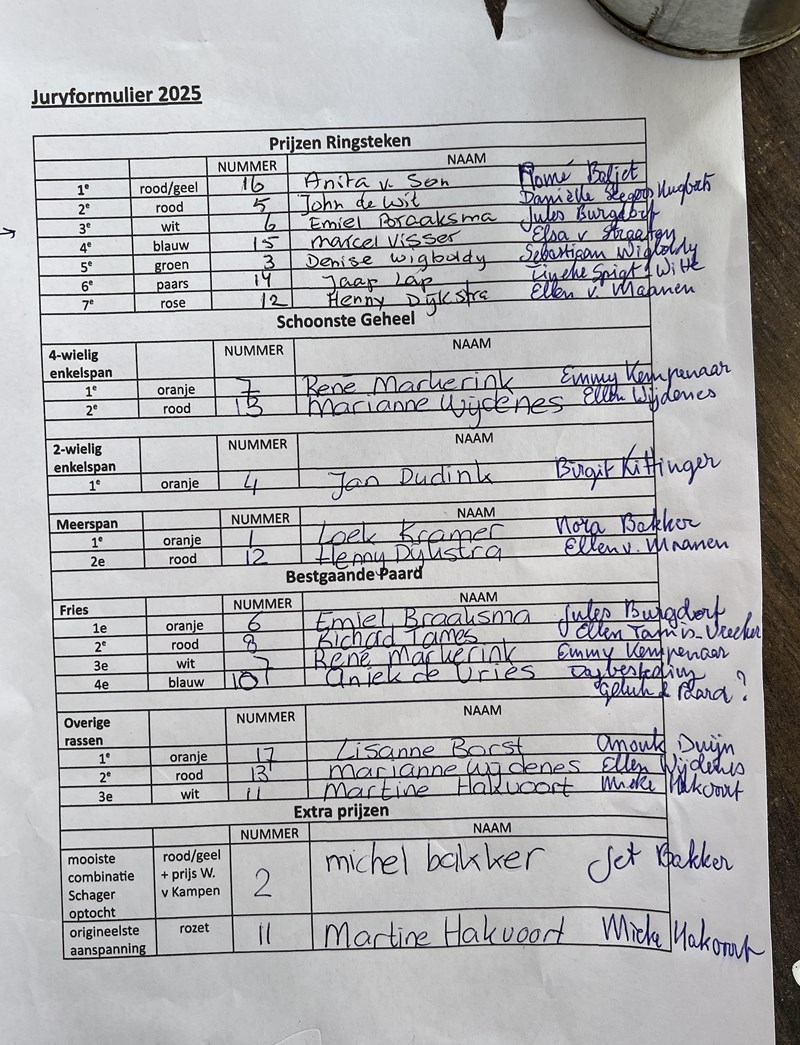 Juryformulier 2025
Prijzen Ringsteken
NUMMER NAAM
1e rood/geel 16 Anita v. Son Baljet
2e rood 5 John de Wit Danielle
3e wit 6 Emiel Braaksma Jules Burgdorf
4e blauw 15 Marcel Visser Elsa v Straaten
5e groen 3 Denise Wigboldy Sebastiaan Wigboldy
6e paars 14 Jaap Lap Tineke Spigt Witte
7e rose 12 Henny Dijkstra Ellen v. Maanen
Schoonste Geheel
4-wielig enkelspan NUMMER NAAM
1e oranje 7 René Markerink Emmy Kempenaar
2e rood 13 Marianne Wijdenes Ellen Wijdenes
2-wielig enkelspan NUMMER NAAM
1e oranje 4 Jan Dudink Birgit Kittinger
Meerspan NUMMER NAAM
1e oranje 1 Loek Kramer Nora Bakker
2e rood 12 Henny Dijkstra Ellen v. Maanen
Bestgaande Paard
Fries NUMMER NAAM
1e oranje 6 Emiel Braaksma Jules Burgdorf
2e rood 8 Richard Tames Ellen Tamis-Vreeker
3e wit 7 René Markerink Emmy Kempenaar
4e blauw 10 Aniek de Vries Dagbesteding
Geluk & Paard ?
Overige rassen NUMMER NAAM
1e oranje 17 Lisanne Borst Anouk Duijn
2e rood 13 Marianne Wijdenes Ellen Wijdenes
3e wit 11 Martine Hakvoort Mieke Hakvoort
Extra prijzen
NUMMER NAAM
mooiste combinatie Schager optocht rood/geel + prijs W. v Kampen 2 michel bakker Jet Bakker
origineelste aanspanning rozet 11 Martine Hakvoort Mieke Hakvoort